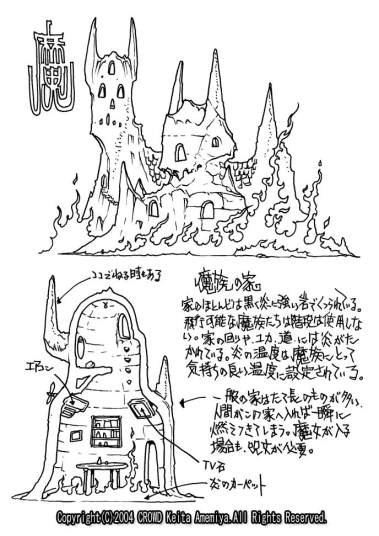 魔
ココでねる時もある
魔族の家。
家のほとんどは黒く炎に強い岩でつくられている。
飛行可能な魔族たちは階段は使用しな
い。家の回りや、ユカ、道には炎がた
かれている。炎の温度は魔族にとって
気持ちの良い温度に設定されている。
エアコン
一般の家はたて長のものが多い、
人間がこの家へ入れば一瞬に
燃えつきてしまう。魔女が入る
場合も、呪文が必要。
TV石
炎のカーペット
Copyright(C)2004 CROWD Keita Amemiya.All Rights Reserved.